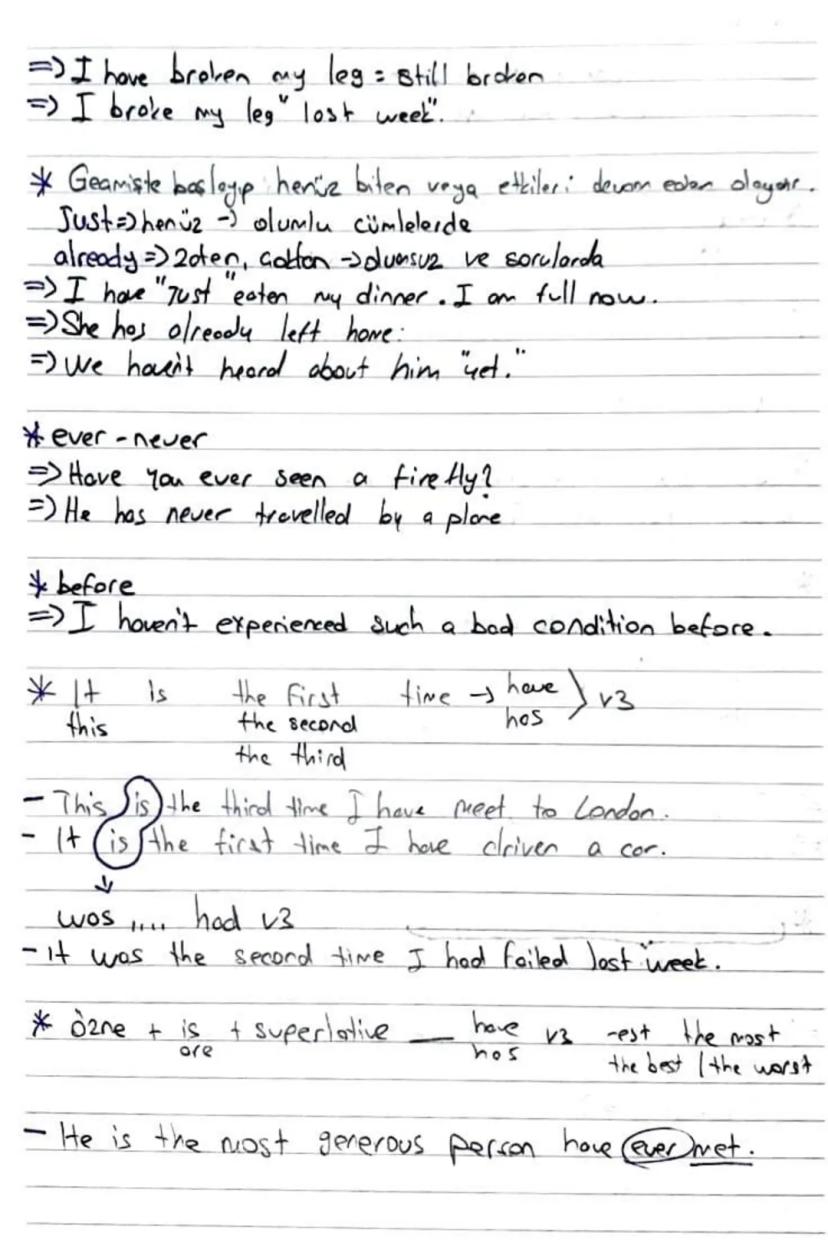 => I have broken my leg = still broken
=> I broke my leg "last week".
* Geçmişte başlayıp henüz biten veya etkileri devam eden olaylar.
Just => henüz -> olumlu cümlelerde
already => zoten, çoktan -> olumsuz ve sorularda
=> I have "Just" eaten my dinner. I am full now.
=> She has already left home.
=> We haven't heard about him "yet."
* ever - never
=> Have you ever seen a firefly?
=> He has never travelled by a plane
* before
=> I haven't experienced such a bad condition before.
* It is the first time -> have } v3
this the second has
the third
- This is the third time I have meet to London.
- It is the first time I have driven a car.
↓
was .... had v3
- It was the second time I had failed last "week.
* Özne + is + superlative __ have v3 -est the most
are has the best / the worst
- He is the most generous person have ever met.